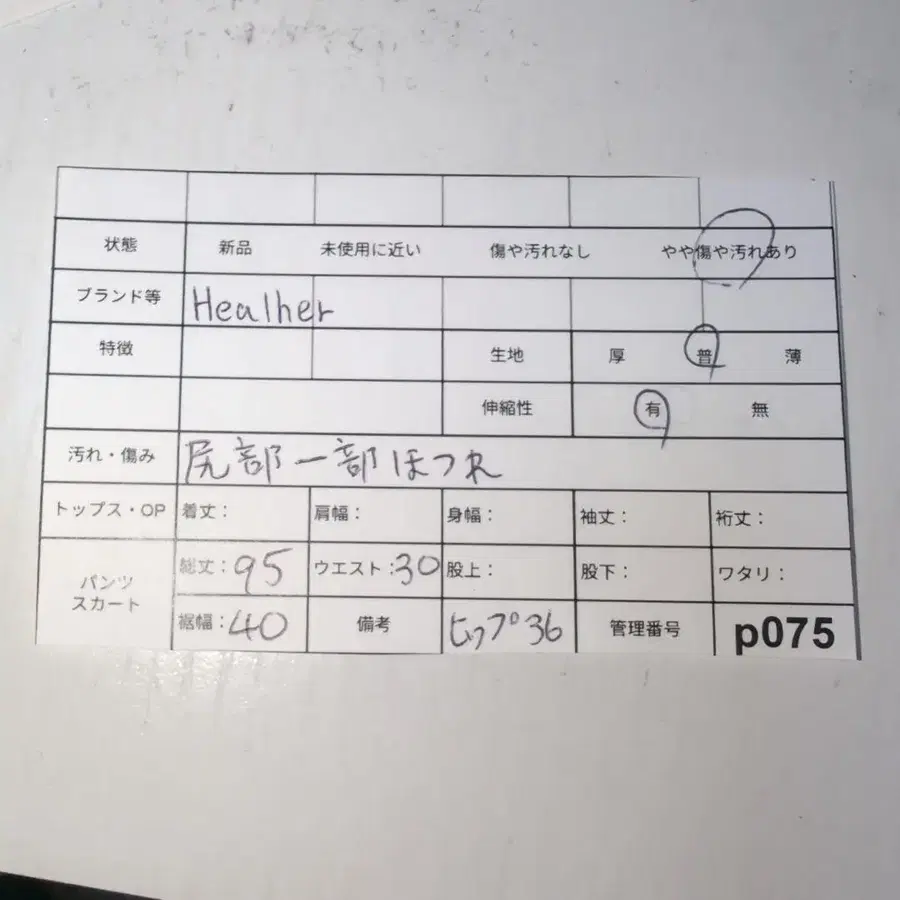 状態 新品 未使用に近い 傷や汚れなし やや傷や汚れあり
ブランド等 Healher
特徴 生地 厚 普 薄
伸縮性 有 無
汚れ・傷み 尻部一部ほつれ
トップス・OP 着丈: 肩幅: 身幅: 袖丈: 裄丈:
パンツ スカート 総丈:95 ウエスト:30 股上: 股下: ワタリ:
裾幅:40 備考 ヒップ36 管理番号 p075